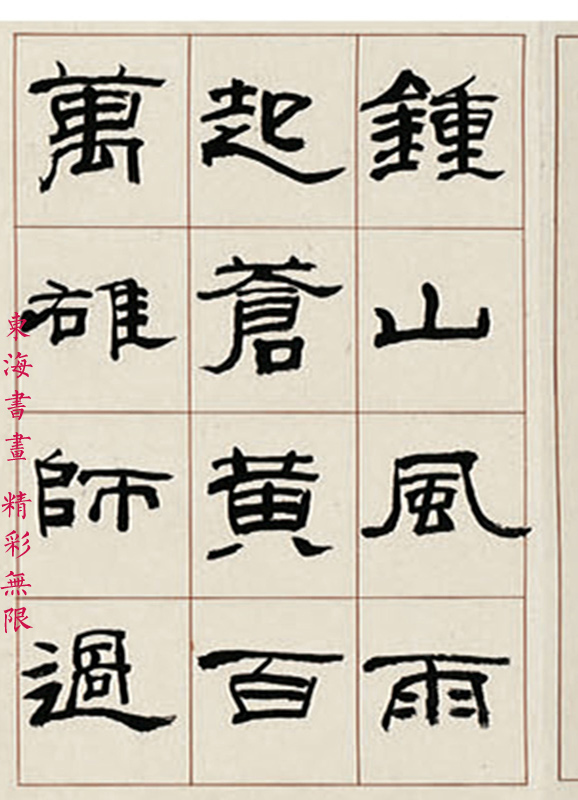 鍾山風雨
起蒼黃百
萬雄師過
東海書畫 精彩無限